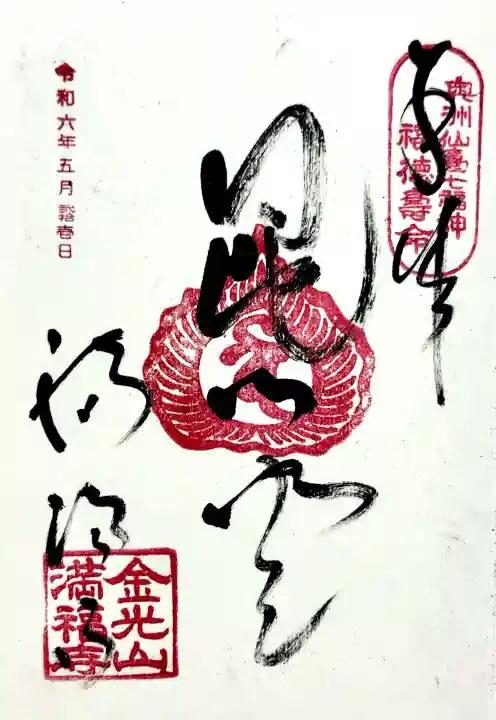 奉拝
奥州仙臺七福神
福徳壽命
令和六年五月拾壱日
満福寺
金光山
満福寺